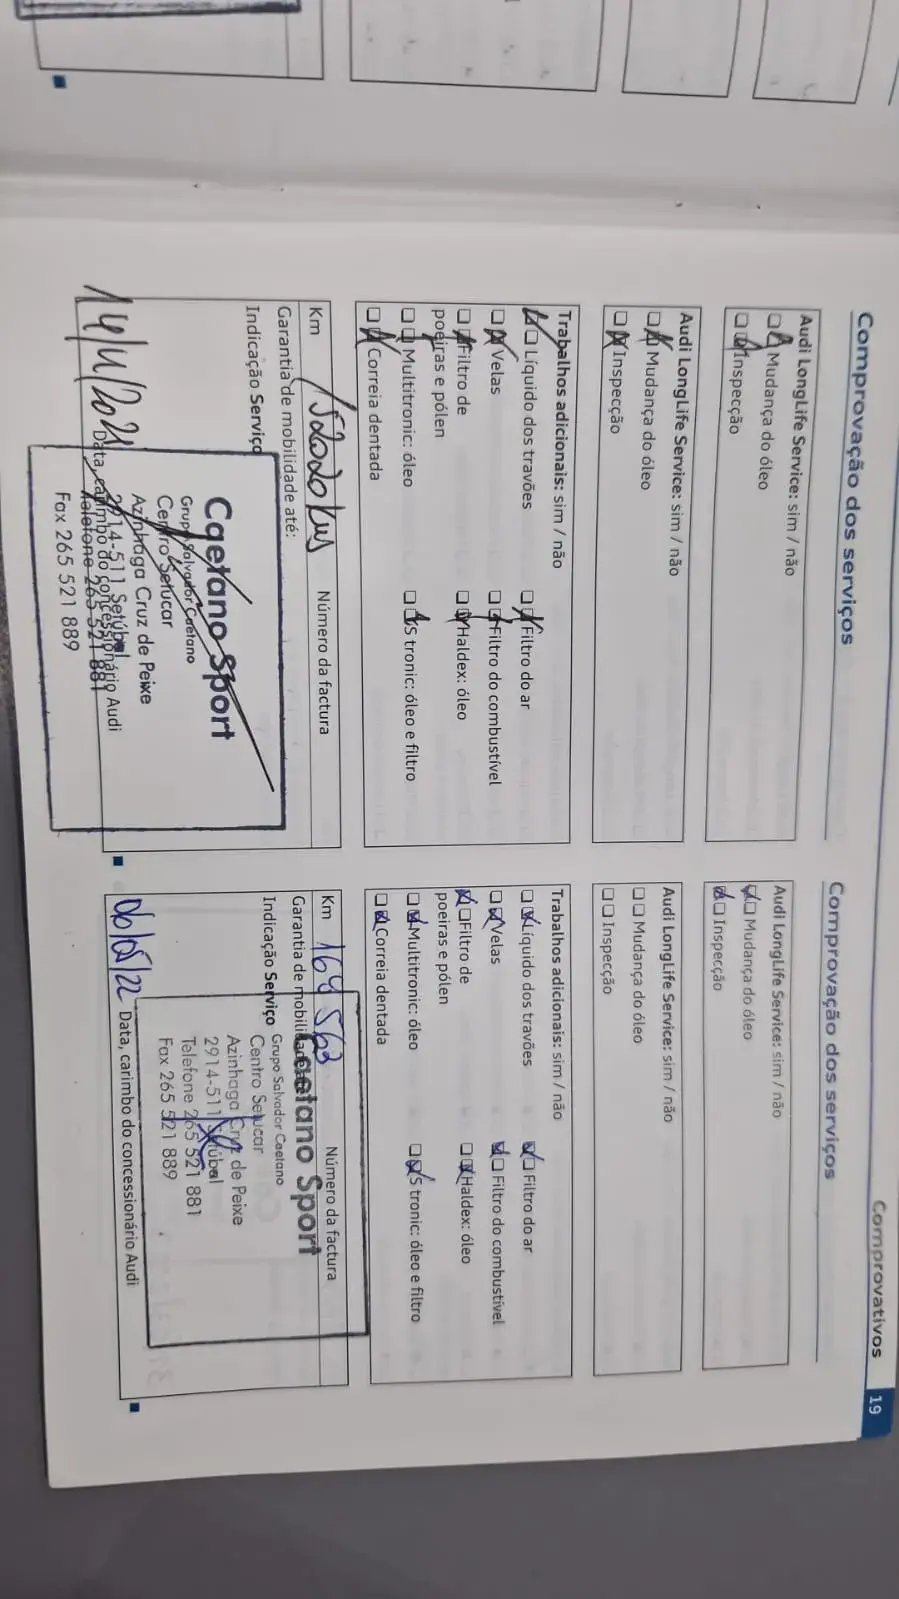 Comprovativos 19
Comprovação dos serviços
Audi LongLife Service: sim / não
Mudança do óleo
Inspecção
Audi LongLife Service: sim / não
Mudança do óleo
Inspecção
Trabalhos adicionais: sim / não
Líquido dos travões
Filtro do ar
Velas
Filtro do combustível
Filtro de
poeiras e pólen
Haldex: óleo
Multitronic: óleo
S tronic: óleo e filtro
Correia dentada
Km 152020 kms
Número da factura
Garantia de mobilidade até:
Indicação Serviço
Caetano Sport
Grupo Salvador Caetano
Centro Setucar
Azinhaga Cruz de Peixe
2914-511 Setúbal
Telefone 265 521 881
Fax 265 521 889
Data, carimbo do concessionário Audi
Comprovação dos serviços
Audi LongLife Service: sim / não
Mudança do óleo
Inspecção
Audi LongLife Service: sim / não
Mudança do óleo
Inspecção
Trabalhos adicionais: sim / não
Líquido dos travões
Filtro do ar
Velas
Filtro do combustível
Filtro de
poeiras e pólen
Haldex: óleo
Multitronic: óleo
S tronic: óleo e filtro
Correia dentada
Km 164 563
Número da factura
Garantia de mobilidade
Indicação Serviço
Caetano Sport
Grupo Salvador Caetano
Centro Setucar
Azinhaga Cruz de Peixe
2914-511 Setúbal
Telefone 265 521 881
Fax 265 521 889
06/05/22
Data, carimbo do concessionário Audi